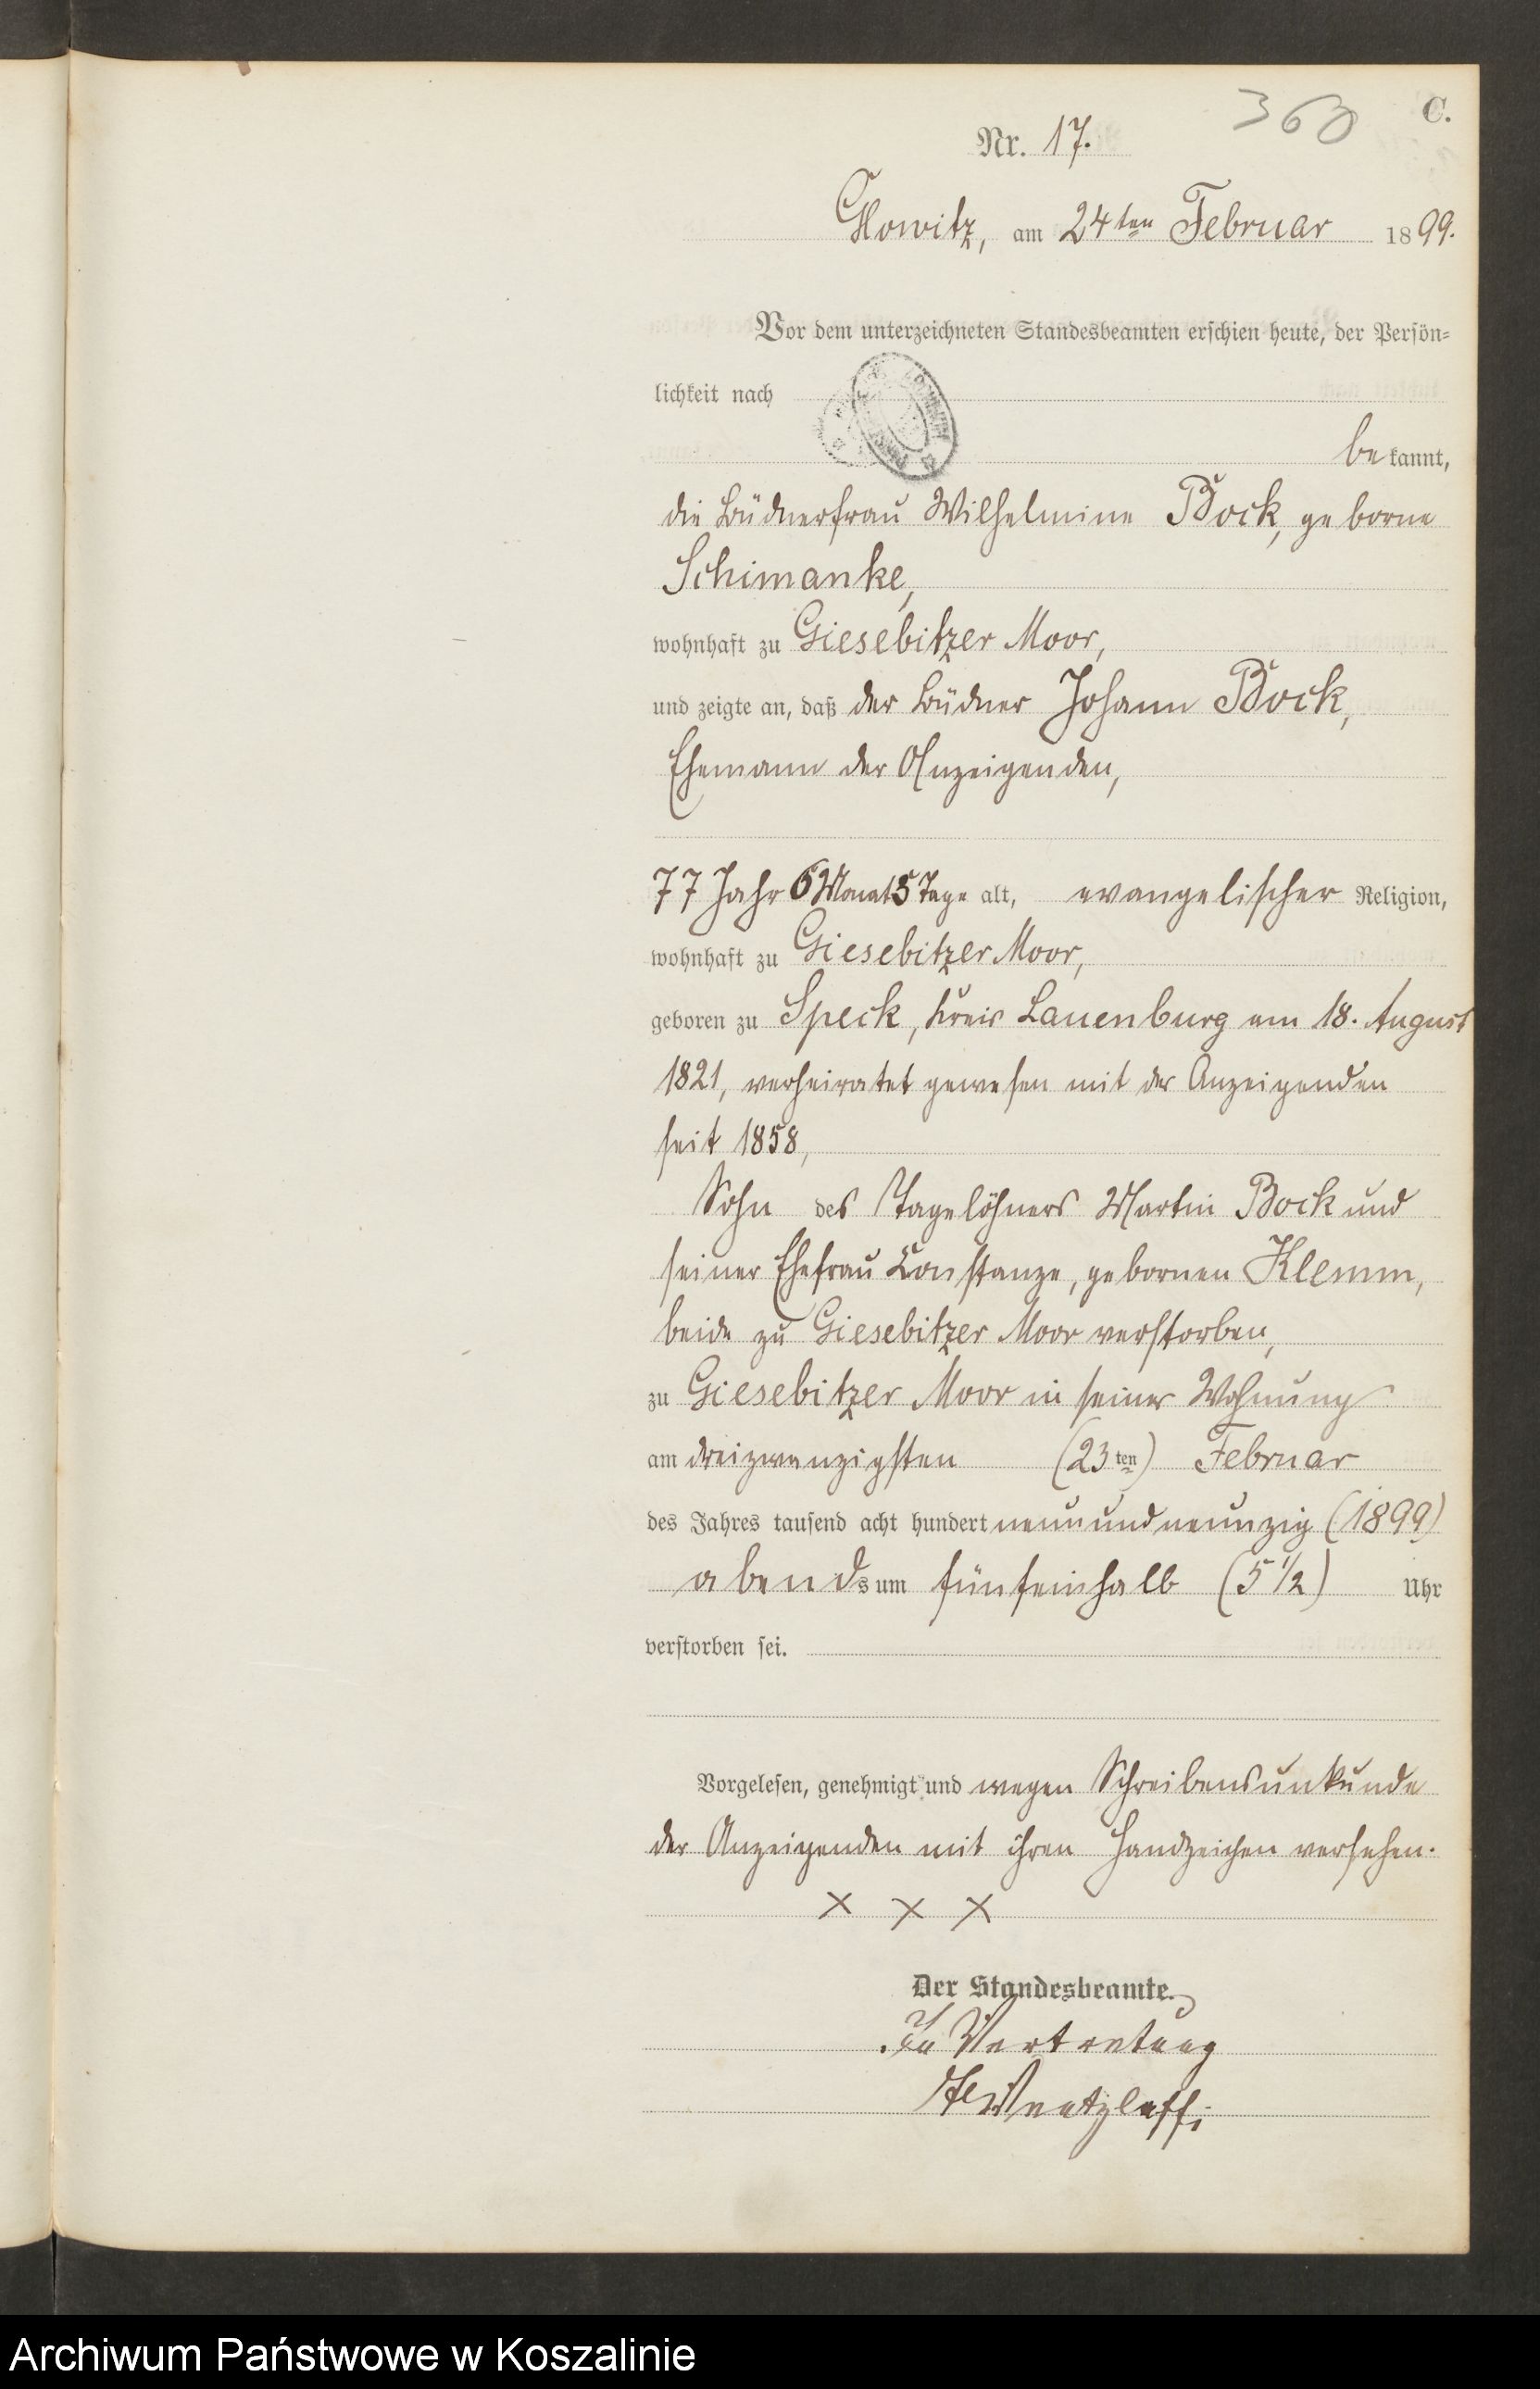 360
C.
Nr. 17.
Glowitz, am 24ten Februar 1899.
Vor dem unterzeichneten Standesbeamten erschien heute, der Persön-
lichkeit nach
bekannt,
die Büdnerfrau Wilhelmine Bock, geborne
Schimanke,
wohnhaft zu Giesebitzer Moor,
und zeigte an, daß der Büdner Johann Bock,
Ehemann der Anzeigenden,
77 Jahr 6 Monat 5 Tage alt, evangelischer Religion,
wohnhaft zu Giesebitzer Moor,
geboren zu Speck, Kreis Lauenburg am 18. August
1821, verheiratet gewesen mit der Anzeigenden
seit 1858,
Sohn des Tagelöhners Martin Bock und
seiner Ehefrau Constanze, gebornen Klemm,
beide zu Giesebitzer Moor verstorben,
zu Giesebitzer Moor in seiner Wohnung
am dreizwanzigsten (23ten) Februar
des Jahres tausend acht hundert neunundneunzig (1899)
abends um fünfeinhalb (5 1/2) Uhr
verstorben sei.
Vorgelesen, genehmigt und wegen Schreibensunkunde
der Anzeigenden mit ihren Handzeichen versehen.
x x x
Der Standesbeamte.
In Vertretung
Archiwum Państwowe w Koszalinie